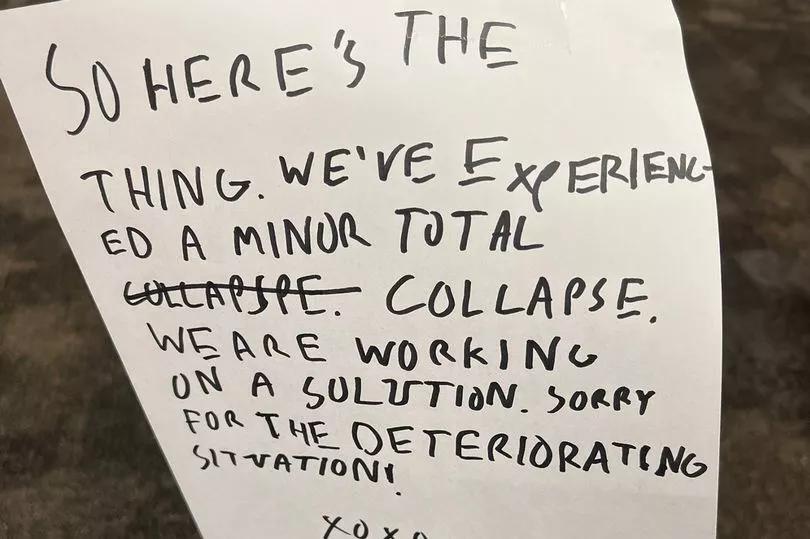 SO HERE'S THE
THING. WE'VE EXPERIENC-
ED A MINOR TOTAL
COLLAPSPE. COLLAPSE.
WE ARE WORKING
ON A SOLUTION. SORRY
FOR THE DETERIORATING
SITUATION!
XOXO